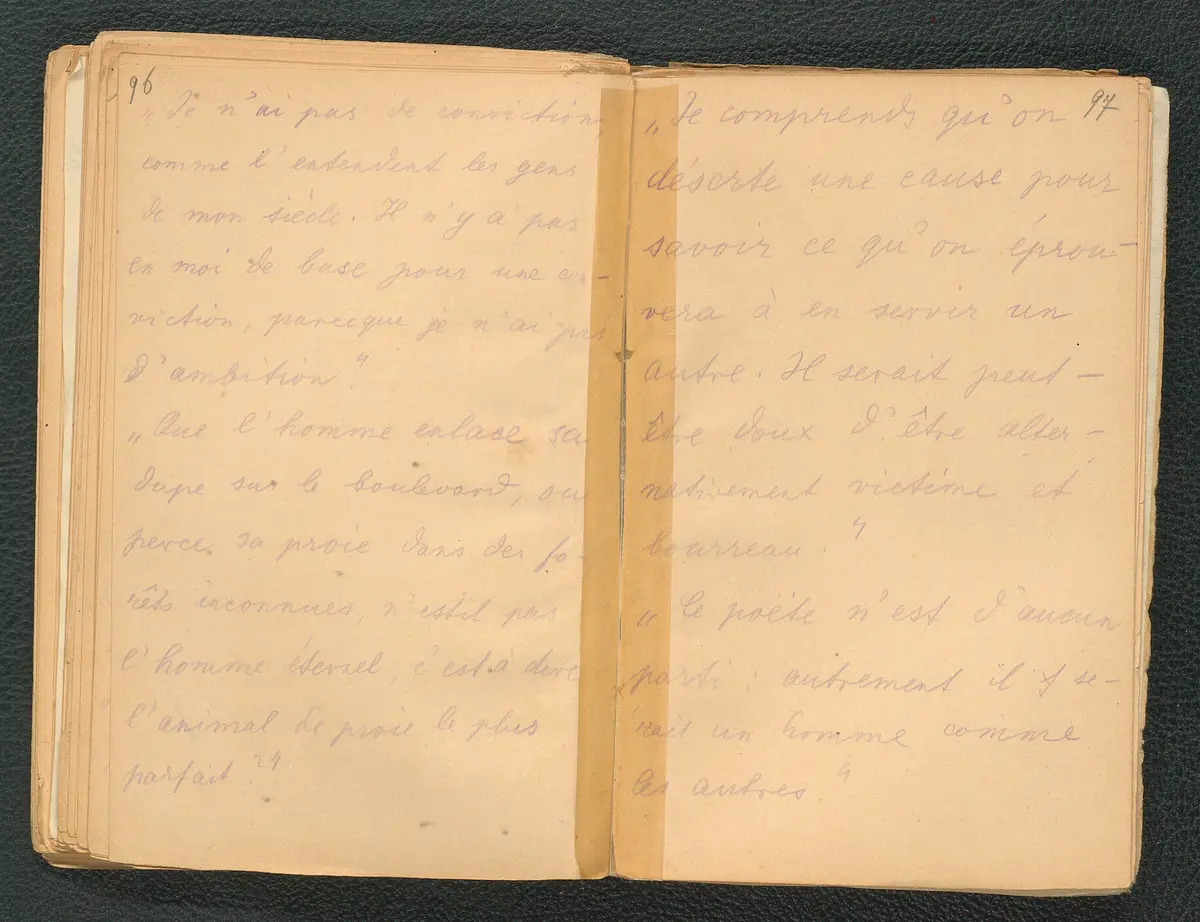 96
„Je n'ai pas de conviction,
comme l'entendent les gens
de mon siècle. Il n'y a pas
en moi de base pour une con-
viction, parceque je n'ai pas
d'ambition"
„Que l'homme enlace sa
dupe sur le boulevard, ou
perce sa proie dans des fo-
rêts inconnues, n'estil pas
l'homme éternel, c'est à dire
l'animal de proie le plus
parfait?"
97
„Je comprends qu'on
déserte une cause pour
savoir ce qu'on éprou-
vera à en servir un
autre. Il serait peut-
être doux d'être alter-
nativement victime et
bourreau."
„le poète n'est d'aucun
parti: autrement il se-
rait un homme comme
les autres"